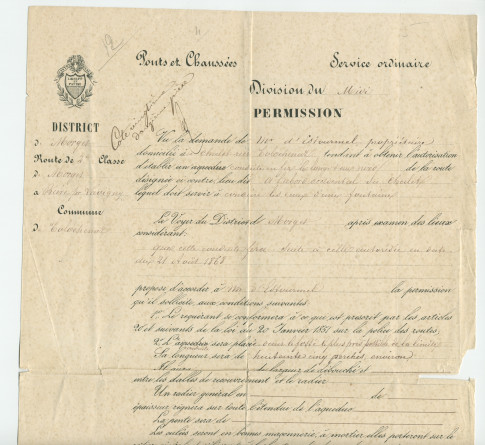 12
Ponts et Chaussées Service ordinaire
Division du Midi
PERMISSION
LIBERTÉ ET PATRIE
DISTRICT
de Morges
Route de 2e Classe
de Morges
à
Commune
de Colombier
Vu la demande de Mr d'Estournel, propriétaire
domicilié à tendant à obtenir l'autorisation
d'établir un aqueduc de la route
désignée ci-contre, lieu dit
lequel doit servir à conduire les eaux d'une fontaine
Le Voyer du District de Morges après examen des lieux
considérant:
Que cette conduite fera suite à celle autorisée en date
du 21 Août 1868
propose d'accorder à Mr d'Estournel la permission
qu'il sollicite, aux conditions suivantes:
1° Le requérant se conformera à ce qui est prescrit par les articles
26 et suivants de la loi du 20 Janvier 1851 sur la police des routes.
2° L'aqueduc sera placé sous le fossé le plus possible de la limite
Sa longueur sera de trente cinq perches environ
de largeur de débouché et
entre les dalles de recouvrement et le radier.
Un radier général en de
épaisseur règnera sur toute l'étendue de l'aqueduc.
La pente sera de
Les culées seront en bonne maçonnerie à mortier; elles porteront sur le